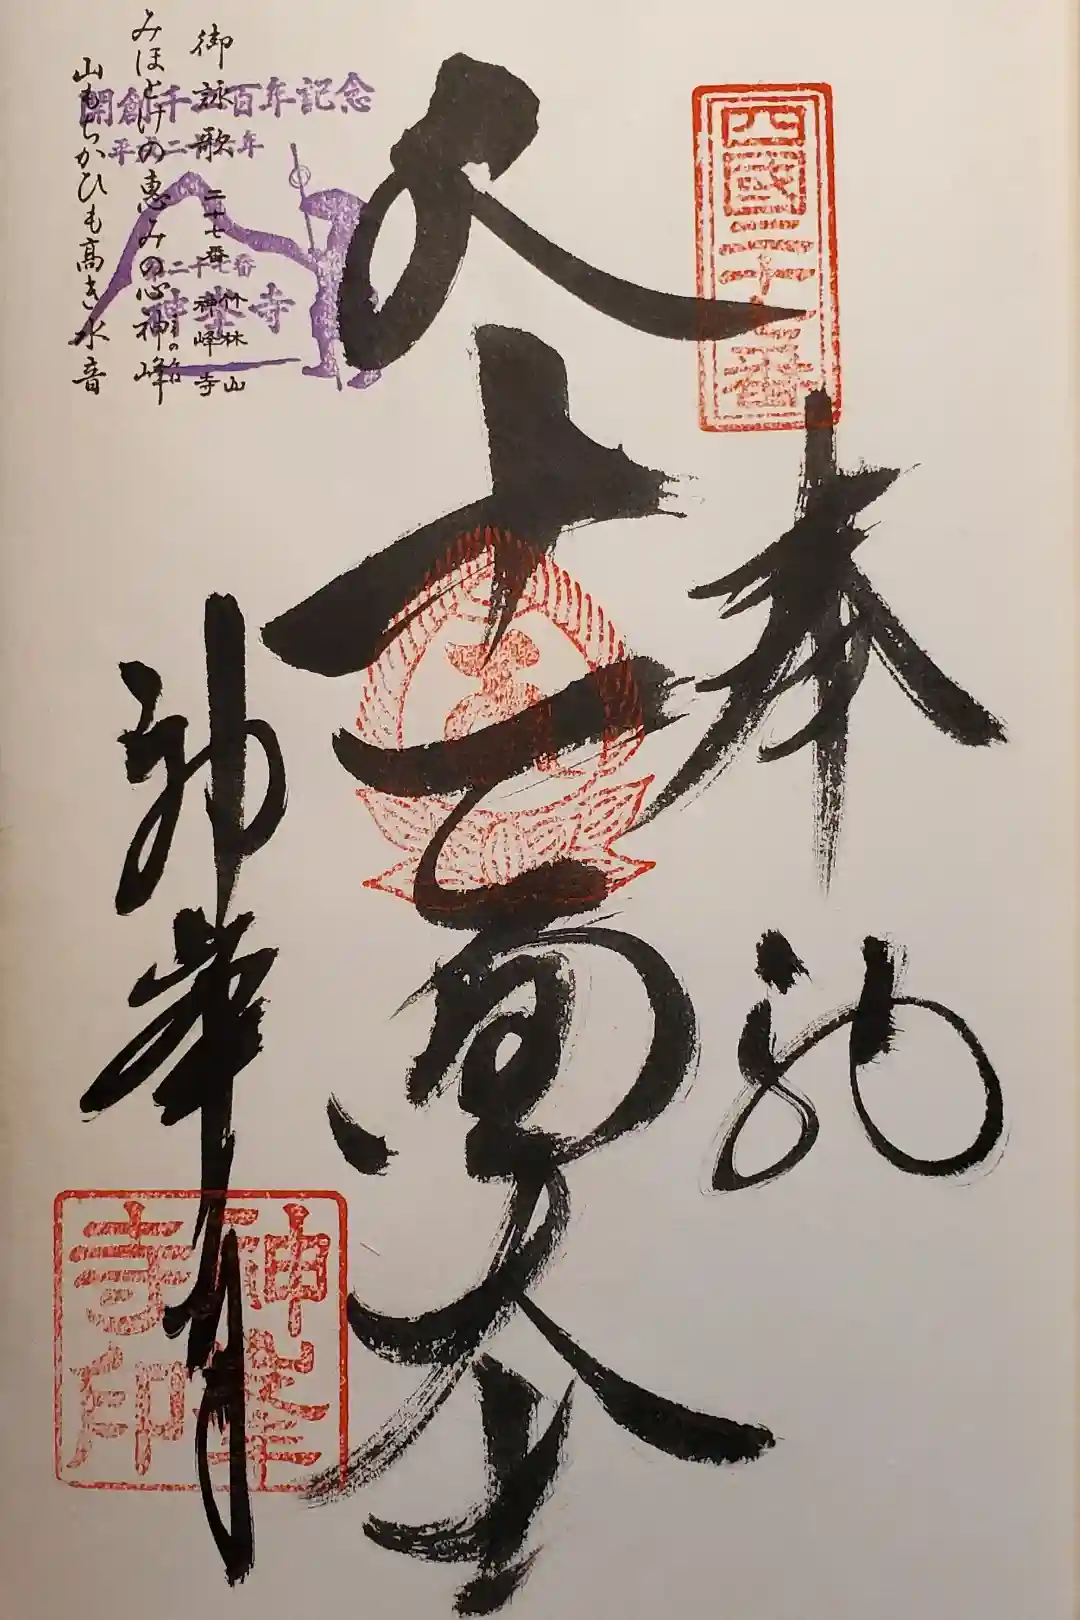 四國二十七番
奉納
十一面大士
神峯寺
神峯寺印
御詠歌 二十七番 竹林山 神峰寺
みほとけの恵みの心神峰
山もちかひも高き水音
開創千二百年記念
平成二十六年
二十七番
神峯寺